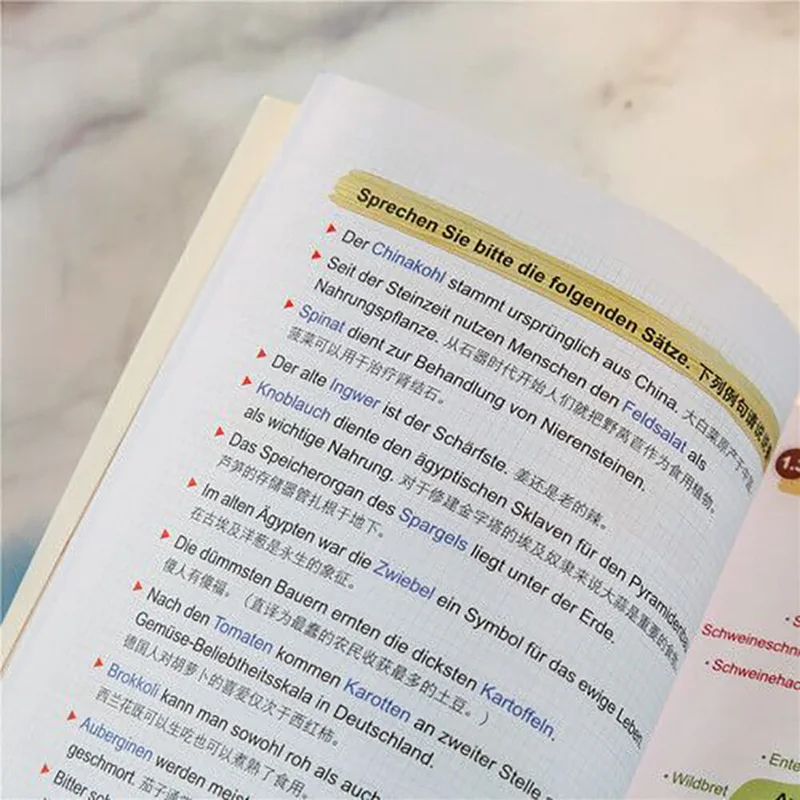 Sprechen Sie bitte die folgenden Sätze. 下列例句请说说看
Der Chinakohl stammt ursprünglich aus China. 大白菜原产于中国
Seit der Steinzeit nutzen Menschen den Feldsalat als
Nahrungspflanze. 从石器时代开始人们就把野莴苣作为食用植物。
Spinat dient zur Behandlung von Nierensteinen.
菠菜可以用于治疗肾结石。
Der alte Ingwer ist der Schärfste. 姜还是老的辣。
Knoblauch diente den ägyptischen Sklaven für den Pyramidenbau
als wichtige Nahrung. 对于修建金字塔的埃及奴隶来说大蒜是重要的食物
Das Speicherorgan des Spargels liegt unter der Erde.
芦笋的存储器管扎根于地下。
Im alten Ägypten war die Zwiebel ein Symbol für das ewige Leben.
在古埃及洋葱是永生的象征。
Die dümmsten Bauern ernten die dicksten Kartoffeln.
傻人有傻福。（直译为最蠢的农民收获最多的土豆。）
Nach den Tomaten kommen Karotten an zweiter Stelle
Gemüse-Beliebtheitsskala in Deutschland.
德国人对胡萝卜的喜爱仅次于西红柿。
Brokkoli kann man sowohl roh als auch
西兰花既可以生吃也可以煮熟了食用。
Auberginen werden meist
geschmort. 茄子通
Bitter
1.
Schweineschni
• Schweinehac
• Ente
• Wildbret